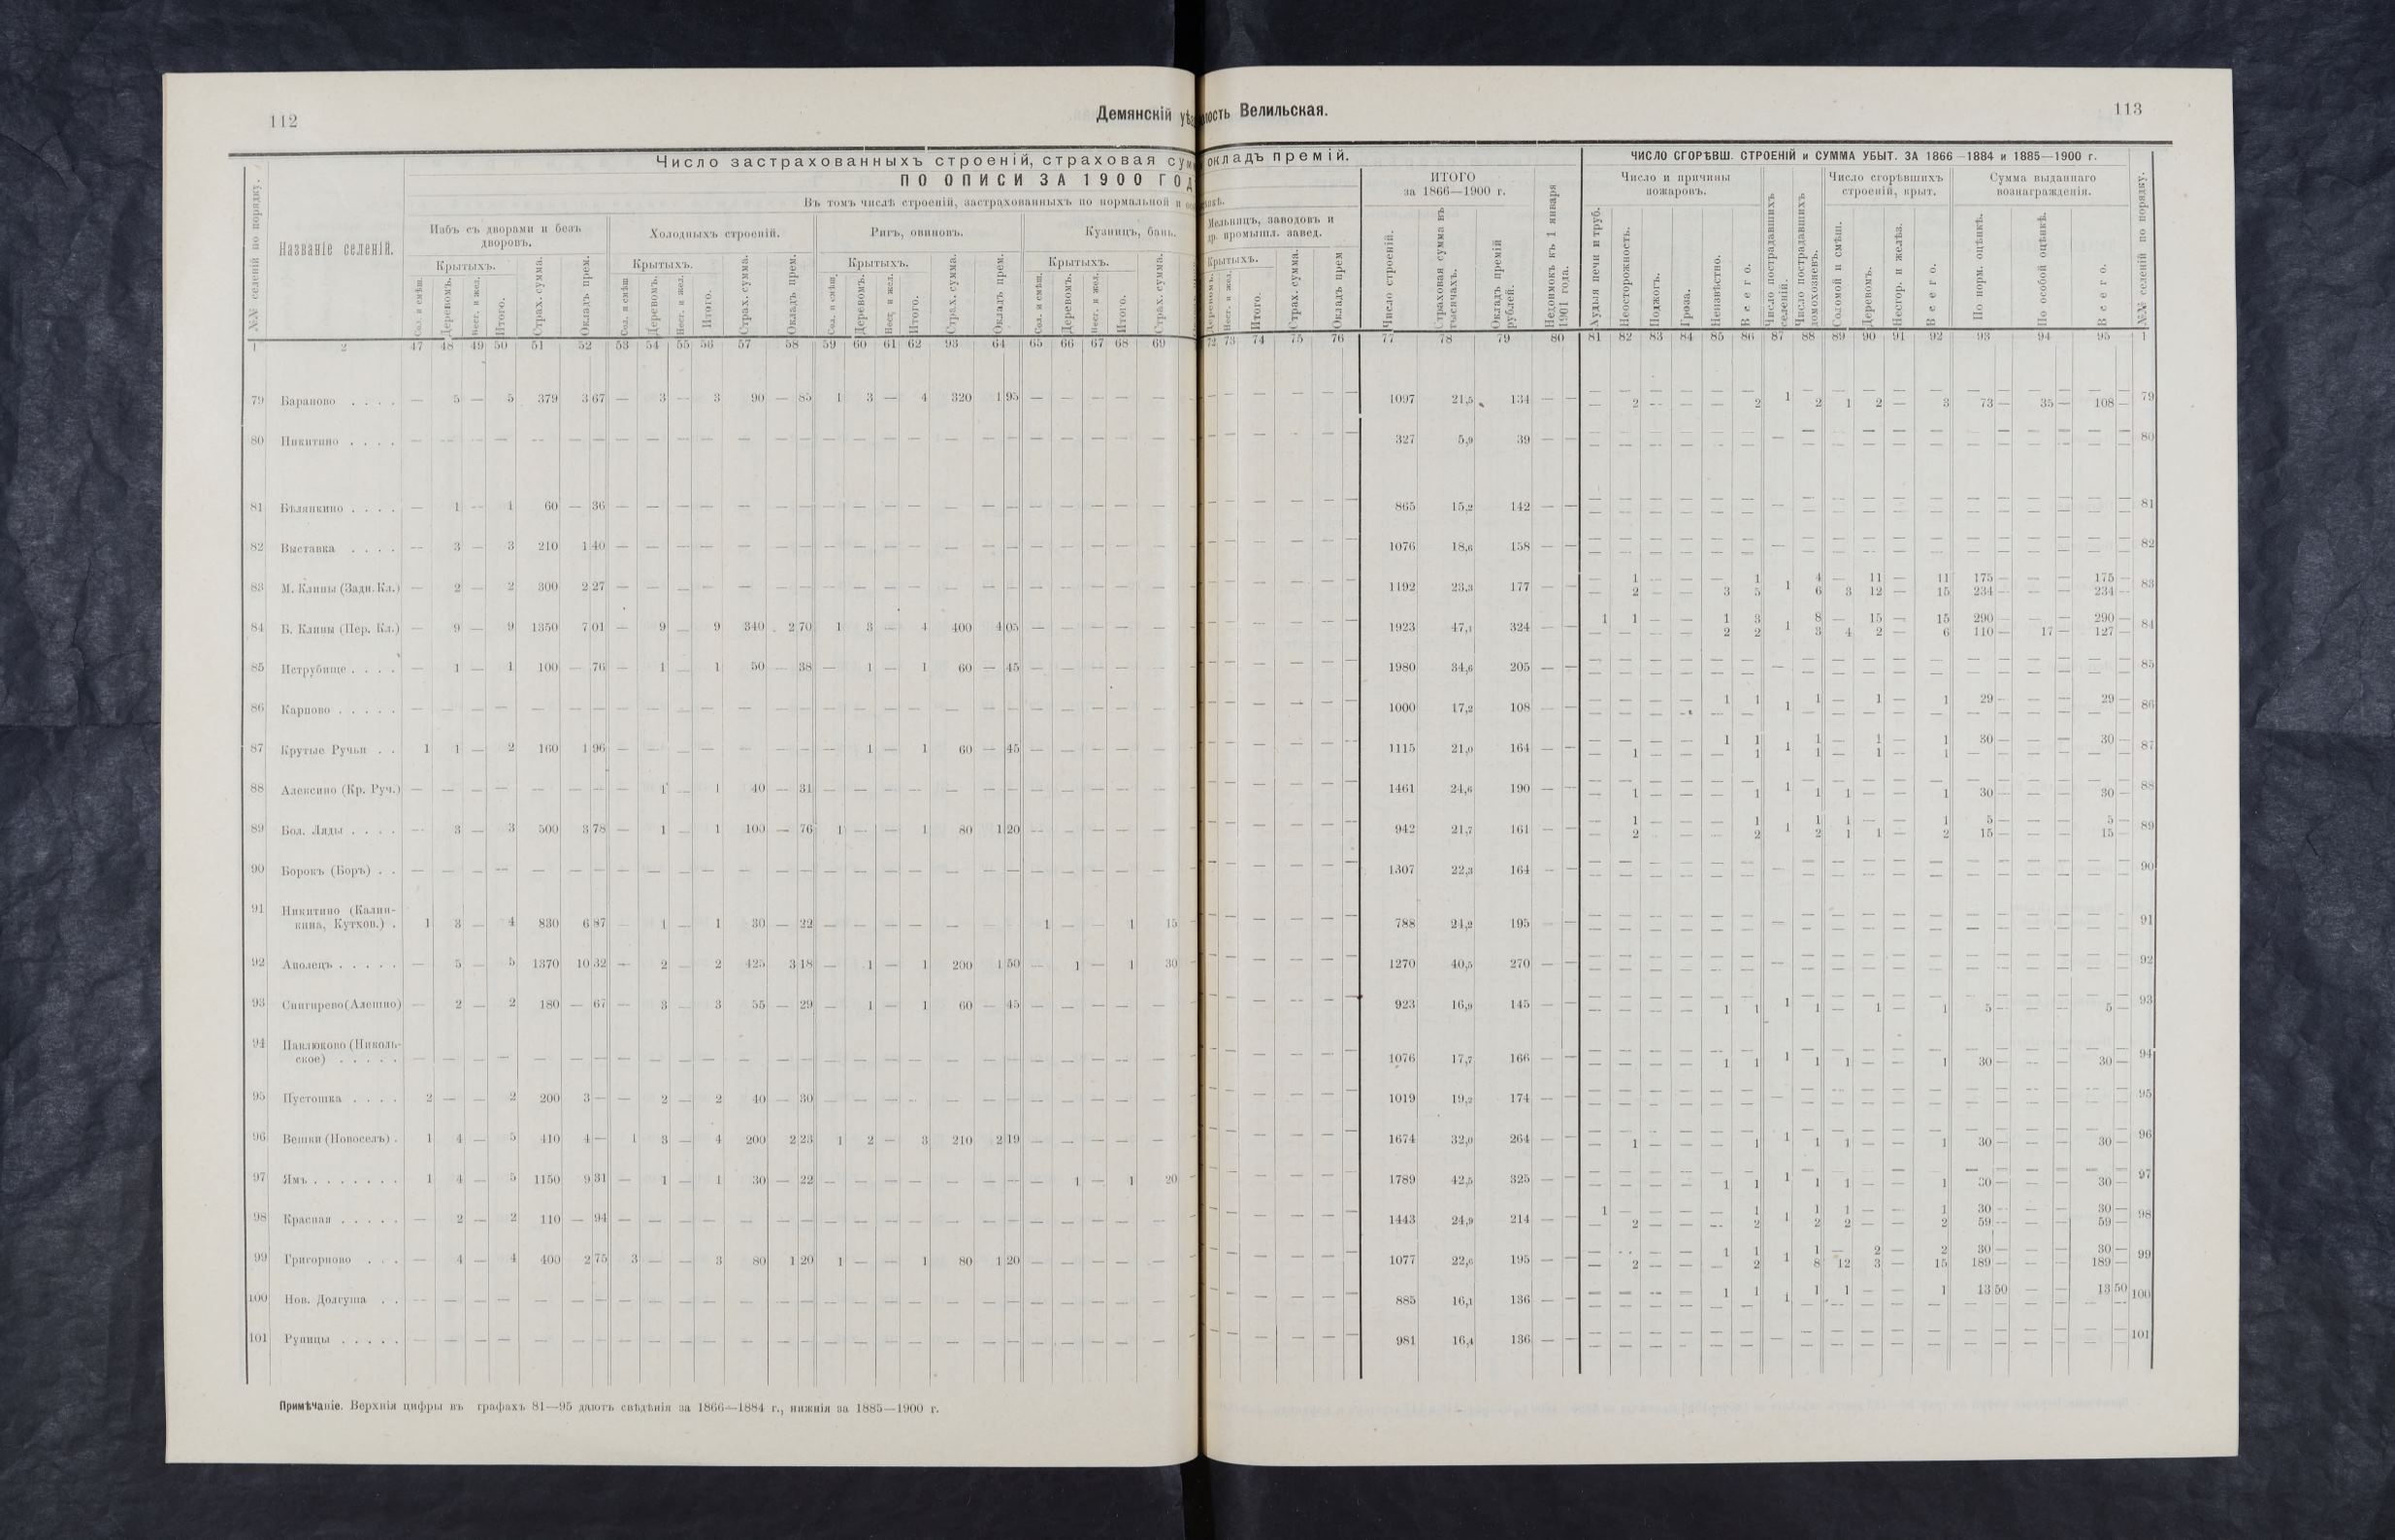 112
Демянскій
Велильская.
113
Число застрахованныхъ строеній, страховая
окладъ премій.
ПО ОПИСИ ЗА 1900
Въ томъ числѣ строеній, застрахованныхъ по нормальной и
ИТОГО
за 1866—1900 г.
ЧИСЛО СГОРѢВШ. СТРОЕНІЙ и СУММА УБЫТ. ЗА 1866—1884 и 1885—1900 г.
№№ селеній по порядку.
Названіе селеній.
Избъ съ дворами и безъ
дворовъ.
Холодныхъ строеній.
Ригъ, овиновъ.
Кузницъ, бань.
Мельницъ, заводовъ и
др. промышл. завед.
Число и причины
пожаровъ.
Число сгорѣвшихъ
строеній, крыт.
Сумма выданнаго
вознагражденія.
Крытыхъ. Крытыхъ. Крытыхъ. Крытыхъ. Крытыхъ.
Сол. и смѣш. Деревомъ. Несг. и жел. Итого. Страх. сумма. Окладъ прем.
Сол. и смѣш Деревомъ. Несг. и жел. Итого. Страх. сумма. Окладъ прем.
Сол. и смѣш. Деревомъ. Несг. и жел. Итого. Страх. сумма. Окладъ прем.
Сол. и смѣш. Деревомъ. Несг. и жел. Итого. Страх. сумма.
Деревомъ. Несг. и жел. Итого. Страх. сумма. Окладъ прем
Число строеній. Страховая сумма въ тысячахъ. Окладъ премій рублей. Недоимокъ къ 1 января 1901 года.
Худыя печи и труб. Неосторожность. Поджогъ. Гроза. Неизвѣстно. Всего. Число пострадавшихъ селеній. Число пострадавшихъ домохозяевъ.
Соломой и смѣш. Деревомъ. Несгор. и желѣз. Всего. По норм. оцѣнкѣ. По особой оцѣнкѣ. Всего. №№ селеній по порядку.
1 2 47 48 49 50 51 52 53 54 55 56 57 58 59 60 61 62 93 64 65 66 67 68 69 72 73 74 75 76 77 78 79 80 81 82 83 84 85 86 87 88 89 90 91 92 93 94 95 1
79 Бараново . . . . — 5 — 5 379 3 67 — 3 — 3 90 — 85 1 3 — 4 320 1 95 — — — — — — — — — — 1097 21,5 134 — — 1 79
— 2 — — — 2 2 1 2 — 3 73 — 35 — 108 —
80 Никитино . . . . — — — — — — — — — — — — — — — — — — — — — — — — 327 5,9 39 — — — 80
81 Бѣлянкино . . . . — 1 — 1 60 — 36 — — — — — — — — — — — — — — — — — — 865 15,2 142 — — — 81
82 Выставка . . . . — 3 — 3 210 1 40 — — — — — — — — — — — — — — — — — — 1076 18,6 158 — — — 82
83 М. Клины (Задн. Кл.) — 2 — 2 300 2 27 — — — — — — — — — — — — — — — — — — 1192 23,3 177 — — — 1 — — — 1 4 — 11 — 11 175 — — — 175 — 83
— 2 — — 3 5 1 6 3 12 — 15 234 — — — 234 —
84 Б. Клины (Пер. Кл.) — 9 — 9 1350 7 01 — 9 — 9 340 2 70 1 3 — 4 400 4 05 — — — — — 1923 47,1 324 — — 1 1 — — 1 3 8 — 15 — 15 290 — — — 290 — 84
— — — — 2 2 1 3 4 2 — 6 110 — 17 — 127 —
85 Иструбище . . . . — 1 — 1 100 — 76 — 1 — 1 50 — 38 — 1 — 1 60 — 45 — — — — — 1980 34,6 205 — — — 85
86 Карпово . . . . . — — — — — — — — — — — — — — — — — — — — — — — 1000 17,2 108 — — — — — — 1 1 1 — 1 — 1 29 — — — 29 — 86
1
87 Крутые Ручьи . . 1 1 — 2 160 1 96 — — — — — — — 1 — 1 60 — 45 — — — — — 1115 21,0 164 — — — — — — 1 1 1 — 1 — 1 30 — — — 30 — 87
— 1 — — — 1 1 1 — 1 — 1 — — — —
88 Алексино (Кр. Руч.) — — — — — — — 1 — 1 40 — 31 — — — — — — — — — — — 1461 24,6 190 — — 88
— 1 — — — 1 1 1 1 — — 1 30 — — — 30 —
89 Бол. Ляды . . . . — 3 — 3 500 3 78 — 1 — 1 100 — 76 1 — — 1 80 1 20 — — — — — 942 21,7 161 — — — 1 — — — 1 1 1 — — 1 5 — — — 5 — 89
— 2 — — — 2 1 2 1 1 — 2 15 — — — 15 —
90 Борокъ (Боръ) . . — — — — — — — — — — — — — — — — — — — — — — — 1307 22,3 164 — — — 90
91 Никитино (Калин-
кина, Кутхов.) . 1 3 — 4 830 6 87 — 1 — 1 30 — 22 — — — — — — 1 — — 1 15 788 24,2 195 — — — 91
92 Аполецъ . . . . . — 5 — 5 1370 10 32 — 2 — 2 425 3 18 — 1 — 1 200 1 50 — 1 — 1 30 1270 40,5 270 — — — 92
93 Снигирево (Алешно) — 2 — 2 180 — 67 — 3 — 3 55 — 29 — 1 — 1 60 — 45 — — — — — 923 16,9 145 — — 93
— — — — 1 1 1 1 — 1 — 1 5 — — — 5 —
94 Павлюково (Николь-
ское) . . . . . — — — — — — — — — — — — — — — — — — — — — — — 1076 17,7 166 — — 94
— — — — 1 1 1 1 1 — — 1 30 — — — 30 —
95 Пустошка . . . . 2 — — 2 200 3 — — 2 — 2 40 — 30 — — — — — — — — — — — 1019 19,2 174 — — — 95
96 Вешки (Новоселъ) . 1 4 — 5 410 4 — 1 3 — 4 200 2 23 1 2 — 3 210 2 19 — — — — — 1674 32,0 264 — — 96
— 1 — — — 1 1 1 1 — — 1 30 — — — 30 —
97 Ямъ . . . . . . . 1 4 — 5 1150 9 31 — 1 — 1 30 — 22 — — — — — — — 1 — 1 20 1789 42,5 325 — — 97
— — — — 1 1 1 1 1 — — 1 30 — — — 30 —
98 Красная . . . . . — 2 — 2 110 — 94 — — — — — — — — — — — — — — — — — 1443 24,9 214 — — 1 — — — — 1 1 1 — — 1 30 — — — 30 — 98
— 2 — — — 2 1 2 2 — — 2 59 — — — 59 —
99 Григорово . . . — 4 — 4 400 2 75 3 — — 3 80 1 20 1 — — 1 80 1 20 — — — — — 1077 22,6 195 — — — — — — 1 1 1 — 2 — 2 30 — — — 30 — 99
— 2 — — — 2 1 8 12 3 — 15 189 — — — 189 —
100 Нов. Долгуша . . — — — — — — — — — — — — — — — — — — — — — — — 885 16,1 136 — — — — — — 1 1 1 1 — — 1 13 50 — — 13 50 100
1
101 Рупицы . . . . . — — — — — — — — — — — — — — — — — — — — — — — 981 16,4 136 — — — 101
Примѣчаніе. Верхнія цифры въ графахъ 81—95 даютъ свѣдѣнія за 1866—1884 г., нижнія за 1885—1900 г.